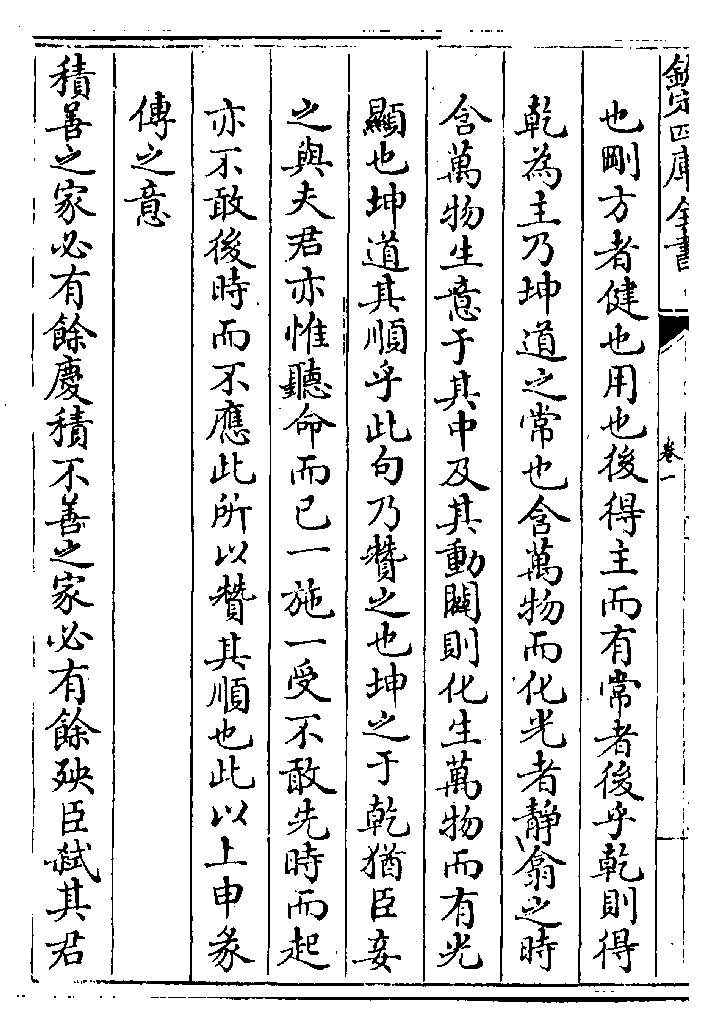 欽定四庫全書
卷一
也剛方者健也用也後得主而有常者後乎乾則得
乾為主乃坤道之常也含萬物而化光者靜翕之時
含萬物生意于其中及其動闢則化生萬物而有光
顯也坤道其順乎此句乃贊之也坤之于乾猶臣妾
之與夫君亦惟聽命而已一施一受不敢先時而起
亦不敢後時而不應此所以贊其順也此以上申彖
傳之意
積善之家必有餘慶積不善之家必有餘殃臣弑其君